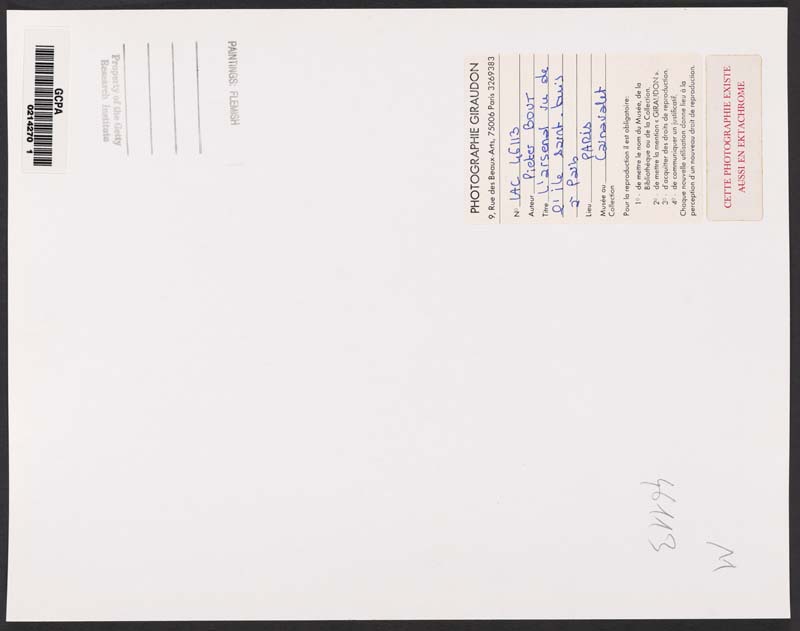 GCPA
0214270 1
Property of the Getty
Research Institute
PAINTINGS, FLEMISH
PHOTOGRAPHIE GIRAUDON
9, Rue des Beaux-Arts, 75006 Paris 3269383
N° LAC 46113
Auteur Pieter BOUT
Titre L'arsenal vu de
l'ile Saint-Louis
à Paris
Lieu PARIS
Musée ou Carnavalet
Collection
Pour la reproduction il est obligatoire :
1° - de mettre le nom du Musée, de la
Bibliothèque ou de la Collection.
2° - de mettre la mention « GIRAUDON ».
3° - d'acquitter des droits de reproduction.
4° - de communiquer un justificatif.
Chaque nouvelle utilisation donne lieu à la
perception d'un nouveau droit de reproduction.
CETTE PHOTOGRAPHIE EXISTE
AUSSI EN EKTACHROME
46113
M